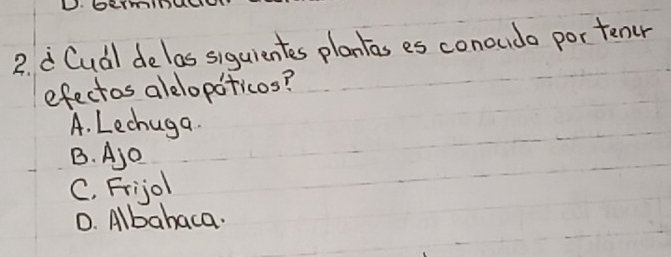 2. ¿Cuál de las siguientes plantas es conocido por tener
efectos alelopáticos?
A. Lechuga.
B. Ajo
C. Frijol
D. Albahaca.